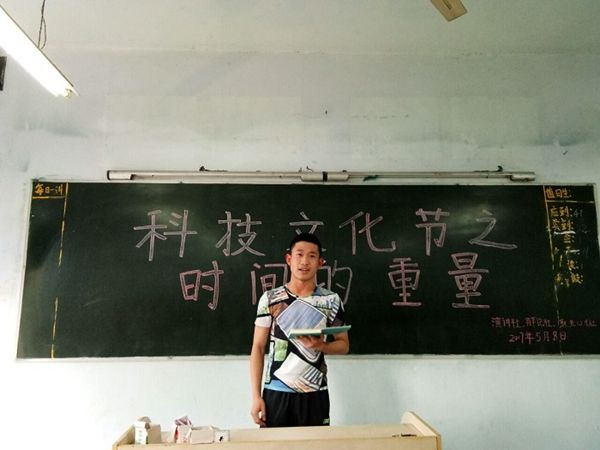 每日一讲
值日生:
科技文化节之
时间的重量
2017年5月8日